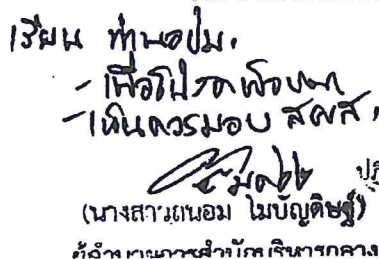 เรียน ท่านอปม.
- เพื่อโปรดพิจารณา
- เห็นควรมอบ สคส.
(นางสาวถนอม ไมบัญดิษฐ์)
ผู้อำนวยการสำนักบริหารกลาง